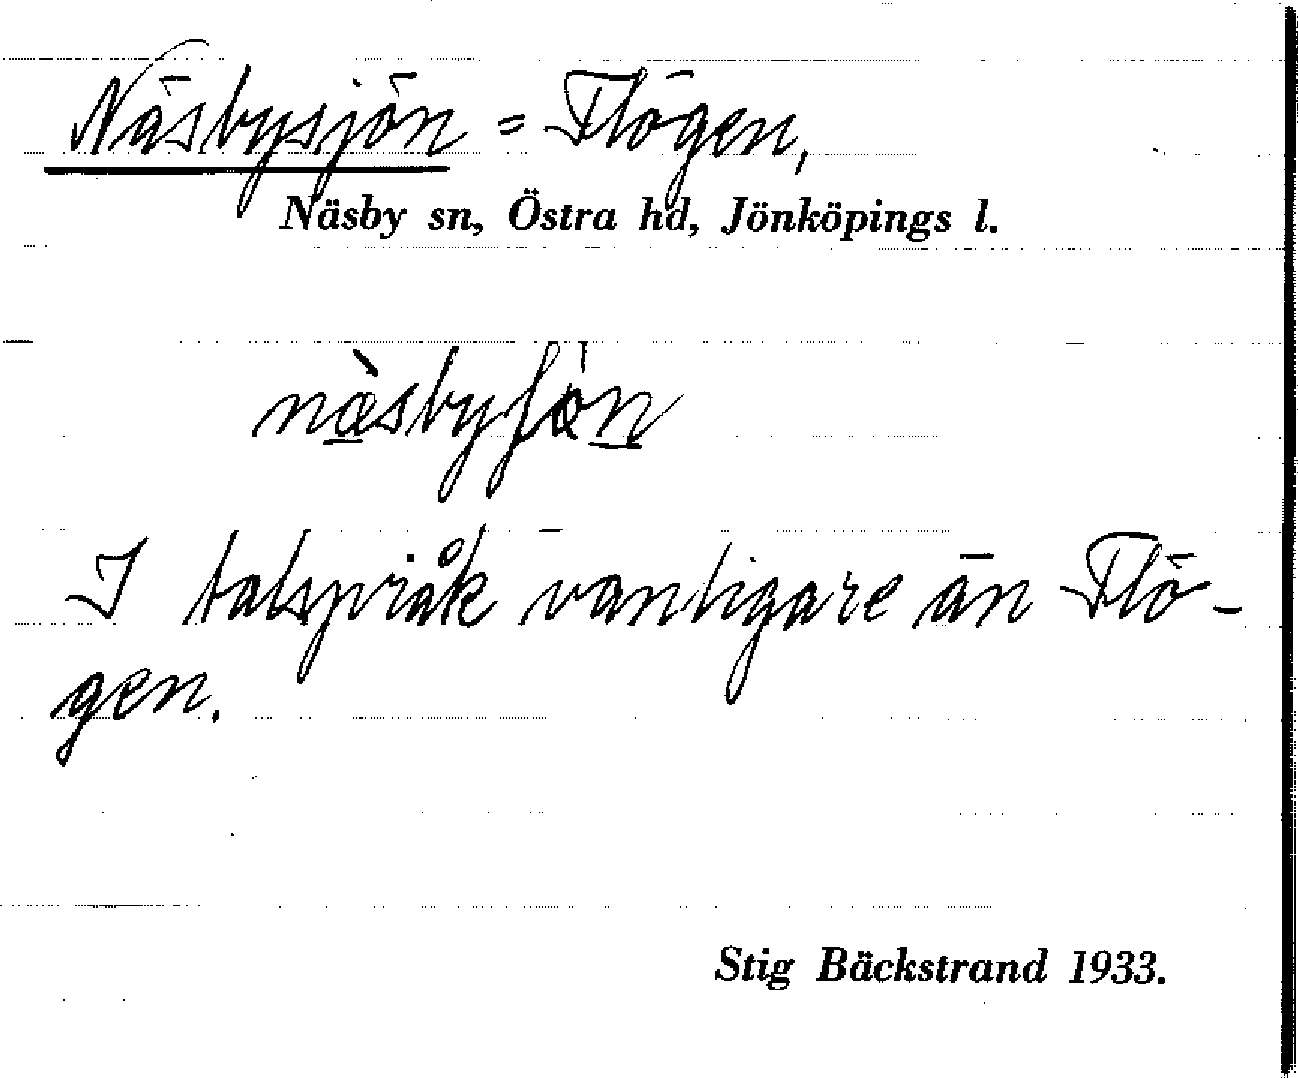 Näsbysjön = Flögen,
Näsby sn, Östra hd, Jönköpings l.
I talspråk vanligare än Flö-
gen.
Stig Bäckstrand 1933.